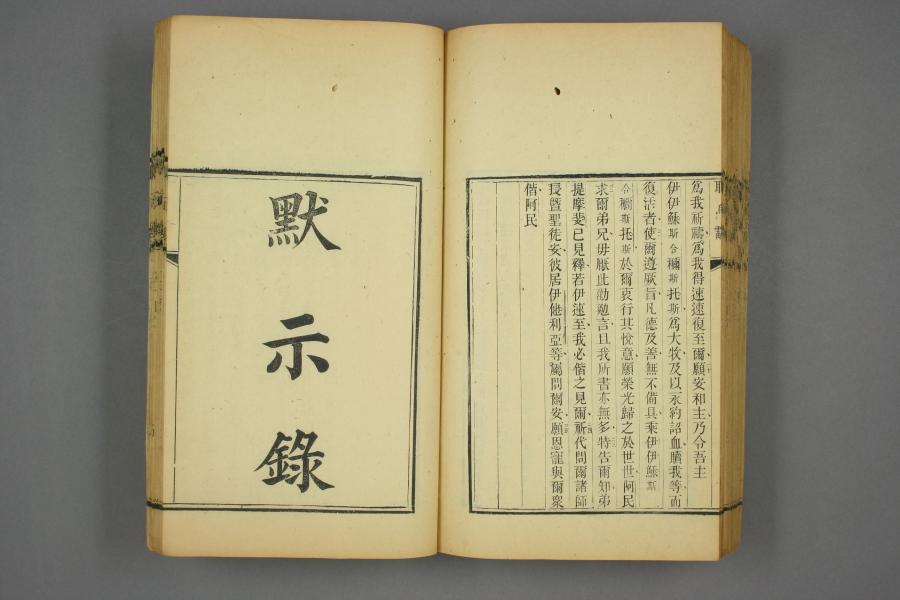 為我祈禱為我得速速復至爾願安和主乃令吾主
伊伊穌斯合穪斯托斯為大牧及以永約詔血贖我等而
復活者使爾遵厥旨凡德及善無不備具乘伊伊穌斯
合穪斯托斯於爾衷行其悅意願榮光歸之於世世阿民
求爾弟兄毋厭此勸勉言且我所書亦無多特告爾知弟
提摩斐已見釋若伊速至我必偕之見爾祈代問爾諸師
長曁聖徒安彼居伊他利亞等屬問爾安願恩寵與爾衆
偕阿民
默示錄